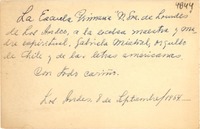 4849
La Escuela Primaria "N. Sra. de Lourdes"
de Los Andes, a la excelsa maestra y ma-
dre espiritual, Gabriela Mistral, orgullo
de Chile y de las letras americanas
Con todo cariño.
Los Andes 8 de Septiembre/1954